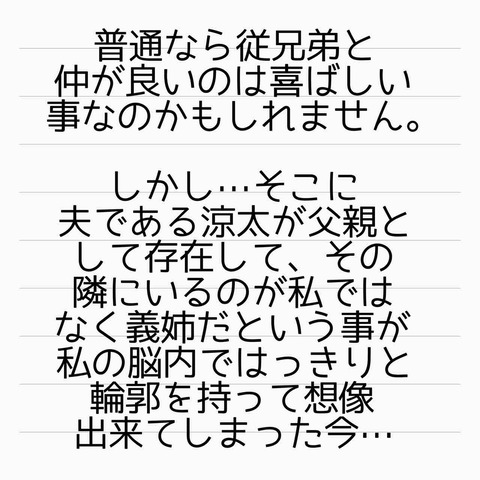 普通なら従兄弟と
仲が良いのは喜ばしい
事なのかもしれません。
しかし…そこに
夫である涼太が父親と
して存在して、その
隣にいるのが私では
なく義姉だという事が
私の脳内ではっきりと
輪郭を持って想像
出来てしまった今…